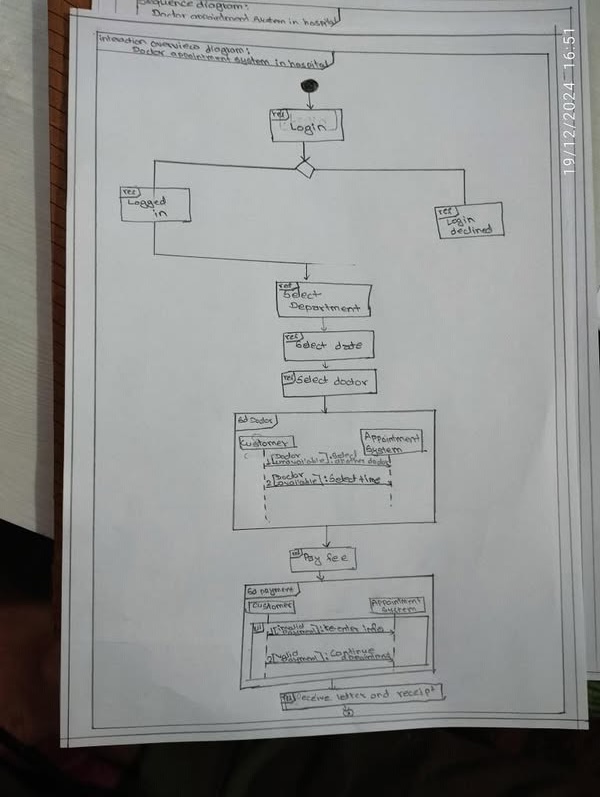 Sequence diagram:
Doctor appointment System in hospital
Interaction overview diagram:
Doctor appointment system in hospital
19/12/2024 16:51
ref
Login
ref
Logged
in
ref
Login
declined
ref
Select
Department
ref
Select date
ref
Select doctor
Sd Doctor
Customer
Appointment
System
1[Doctor
unavailable]:Select
another doctor
2[Doctor
available]:Select time
ref
Pay fee
Sd payment
Customer
Appointment
System
1[invalid
payment]:Re enter info
2[valid
payment]:Continue
ref
Receive letter and receipt